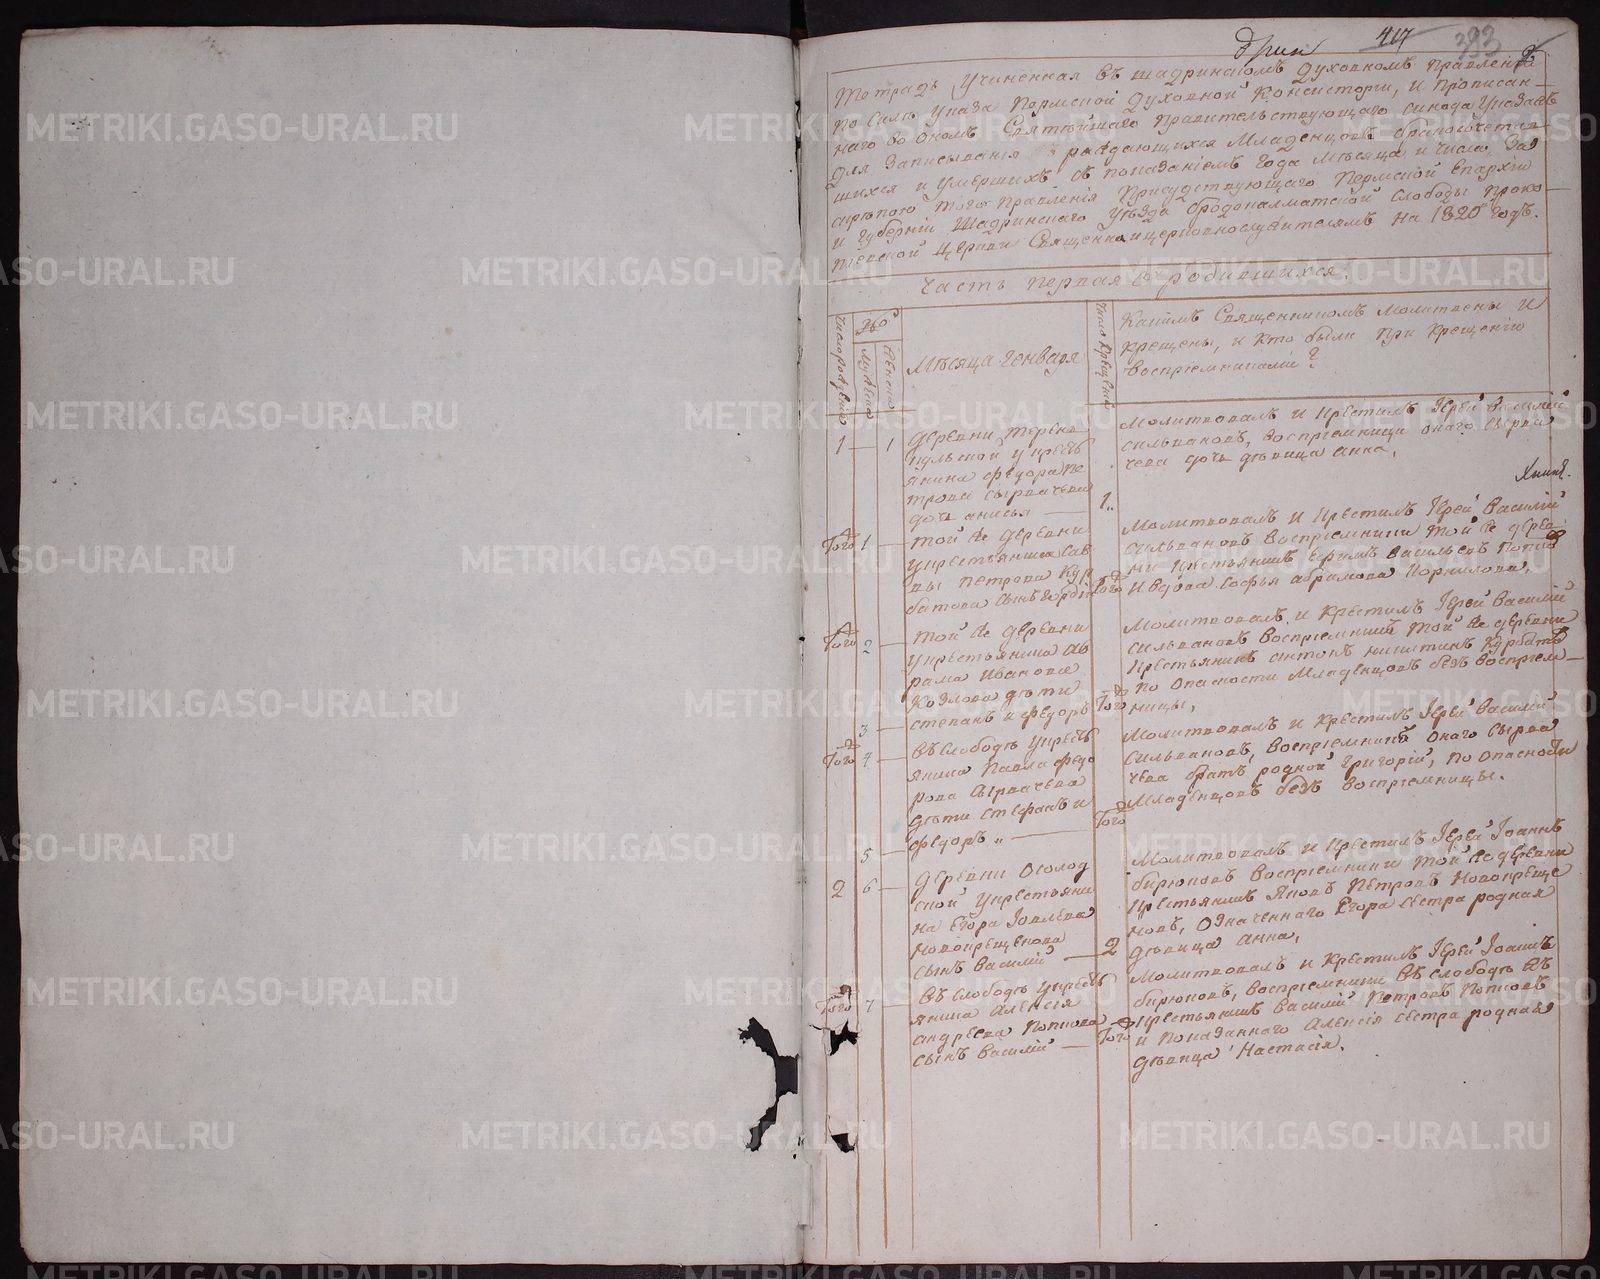 417
393
Тетрадь учиненная въ шадринскомъ Духовномъ Правленіи
по силѣ Указа Пермской Духовной Консисторіи, и прописан-
наго во ономъ Святѣйшаго Правительствующаго синода Указа
для записыванія раждающихся Младенцовъ бракосочетав-
шихся и умершихъ съ показаніемъ года мѣсяца и числа, за
скрѣпою того Правленія Присудствующаго Пермской Епархіи
и губерніи Шадринскаго уѣзда бродокалматской слободы Проко-
піевской Церкви Священно и церковнослужителямъ на 1820 годъ.
Часть первая о родившихся.
Число рожденія
Мужеска
Женска
Мѣсяца Генваря
Число крещенія
Какимъ Священникомъ молитвены и
крещены, и кто были при крещеніи
воспріемниками?
1 1
деревни
у кресть
янина федора пе
трова сырвачева
дочь анисья
1
Молитвовалъ и крестилъ Іерей Василій
сильвановъ, воспріемница онаго сырва
чева дочь дѣвица анна,
Того 1
той же деревни
у крестьянина сав
вы петрова кур
батова сынъ
Того
Молитвовалъ и крестилъ Іерей Василій
сильвановъ воспріемники той же дерев
ни крестьянинъ ефимъ васильевъ
и вдова софья абрамова корнилова,
Того 2
той же деревни
у крестьянина ав
рама Иванова
Козлова дѣти
степанъ и федоръ
3
Того
Молитвовалъ и крестилъ Іерей Василій
сильвановъ воспріемникъ той же деревни
крестьянинъ антонъ никитинъ курбатовъ
по опасности младенцовъ безъ воспріем-
ницы,
Того 4
въ слободѣ у кресть
янина Павла федо
рова Сырвачева
дѣти стефанъ и
федоръ
5
Того
Молитвовалъ и крестилъ Іерей Василій
сильвановъ, воспріемникъ онаго сырва
чева братъ родной григорій, по опасности
младенцовъ безъ воспріемницы.
2 6
деревни осолод
ской у крестьяни
на Егора Іовлева
новокрещенова
сынъ Василій
2
Молитвовалъ и крестилъ Іерей Іоаннъ
бирюковъ воспріемники той же деревни
крестьянинъ Яковъ Петровъ новокреще
новъ, означеннаго Егора сестра родная
дѣвица анна,
Того 7
въ слободѣ у кресть
янина алексія
андреева попкова
сынъ Василій
Того
Молитвовалъ и крестилъ Іерей Іоаннъ
бирюковъ, воспріемники въ слободѣ
крестьянинъ василій петровъ попковъ
и показаннаго алексія сестра родная
дѣвица Настасія.
METRIKI.GASO-URAL.RU